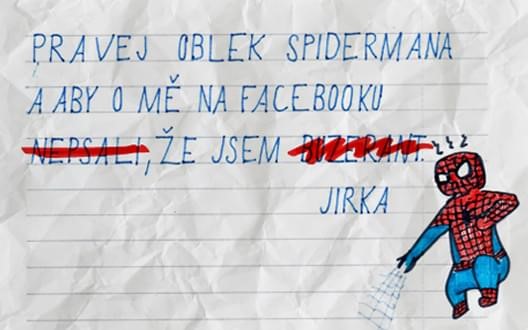 PRAVEJ OBLEK SPIDERMANA
A ABY O MĚ NA FACEBOOKU
NEPSALI, ŽE JSEM BUZERANT.
JIRKA